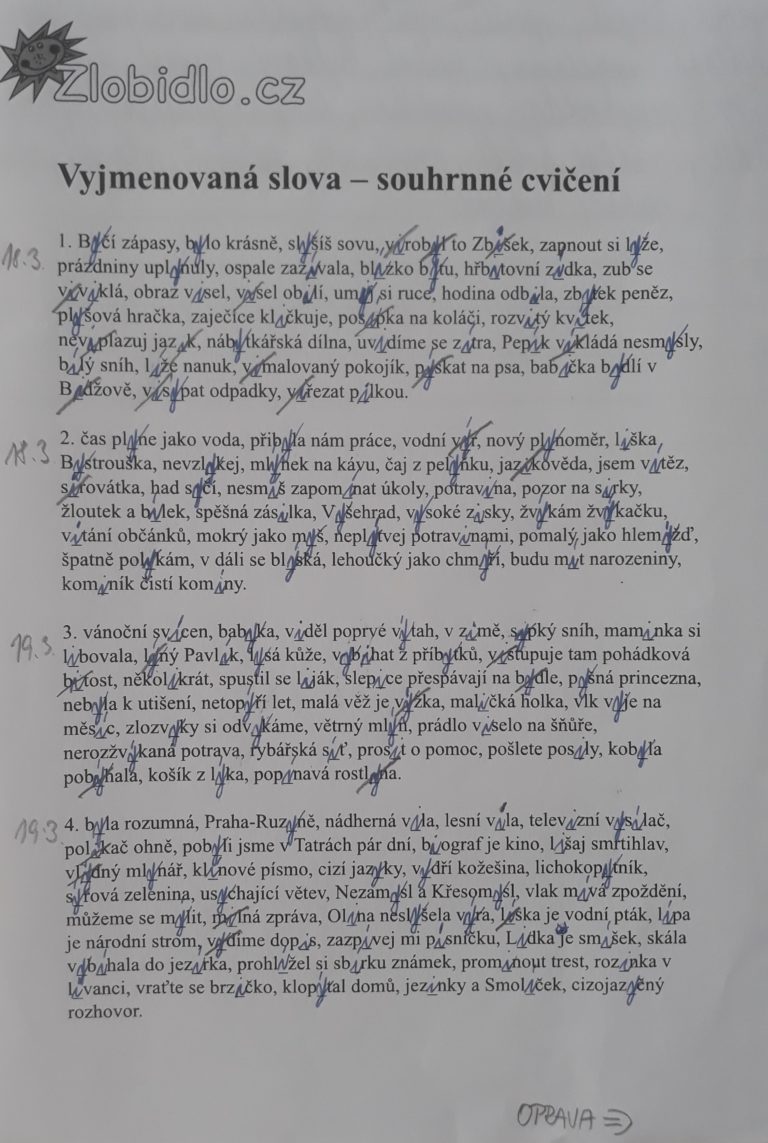 Zlobidlo.cz
Vyjmenovaná slova – souhrnné cvičení
18.3. 1. Býčí zápasy, bylo krásně, slyšíš sovu, vyrobyl to Zbišek, zapnout si lyže,
prázdniny uplynuly, ospale zazívala, blízko bytu, hřbitovní zídka, zub se
viviklá, obraz visel, vesel obilí, umyj si ruce, hodina odbila, zbytek peněz,
plyšová hračka, zaječice kličkuje, posipka na koláči, rozvitý kvítek,
neviplazuj jazyk, nábytkářská dílna, uvidíme se zítra, Pepík vikládá nesmysly,
bílý sníh, líže nanuk, vimalovaný pokojík, pýskat na psa, babička bydlí v
Bydžově, visypat odpadky, viřezat pilkou.
18.3 2. čas plyne jako voda, přibyla nám práce, vodní výr, nový plynoměr, liška
Bystrouška, nevzlykej, mlýnek na kávu, čaj z pelyňku, jazykověda, jsem vítěz,
sirovátka, had syčí, nesmíš zapomínat úkoly, potravina, pozor na sirky,
žloutek a bílek, spěšná zásilka, Vyšehrad, vysoké zisky, žvýkám žvýkačku,
vítání občánků, mokrý jako myš, neplýtvej potravinami, pomalý jako hlemýžď,
špatně polykám, v dáli se blýská, lehoučký jako chmýří, budu mít narozeniny,
kominík čistí komíny.
19.3. 3. vánoční svícen, babyka, viděl poprvé výtah, v zimě, sypký sníh, maminka si
libovala, líný Pavlík, lysá kůže, vybíhat z příbytků, vistupuje tam pohádková
bytost, několikrát, spustil se liják, slepice přespávají na bydle, pyšná princezna,
nebyla k utišení, netopýří let, malá věž je výžka, maličká holka, vlk vyje na
měsíc, zlozvyky si odvykáme, větrný mlýn, prádlo viselo na šňůře,
nerozžvýkaná potrava, rybářská síť, prosit o pomoc, pošlete posily, kobyla
pobýhala, košík z lýka, popínavá rostlyna.
19.3 4. byla rozumná, Praha-Ruzyně, nádherná vila, lesní víla, televizní vysílač,
polikač ohně, pobyli jsme v Tatrách pár dní, biograf je kino, lišaj smrtihlav,
vlýdný mlynář, klínové písmo, cizí jazyky, vydří kožešina, lichokopytník,
syrová zelenina, usychající větev, Nezamysl a Křesomysl, vlak mívá zpoždění,
můžeme se mýlit, mylná zpráva, Olina neslyšela výra, lyska je vodní pták, lípa
je národní strom, vydíme dopis, zazpívej mi písničku, Lidka je smíšek, skála
vybíhala do jezírka, prohlížel si sbírku známek, prominout trest, rozinka v
lívanci, vraťte se brzičko, klopýtal domů, jezinky a Smolíček, cizojazyčný
rozhovor.
OPRAVA ⇒